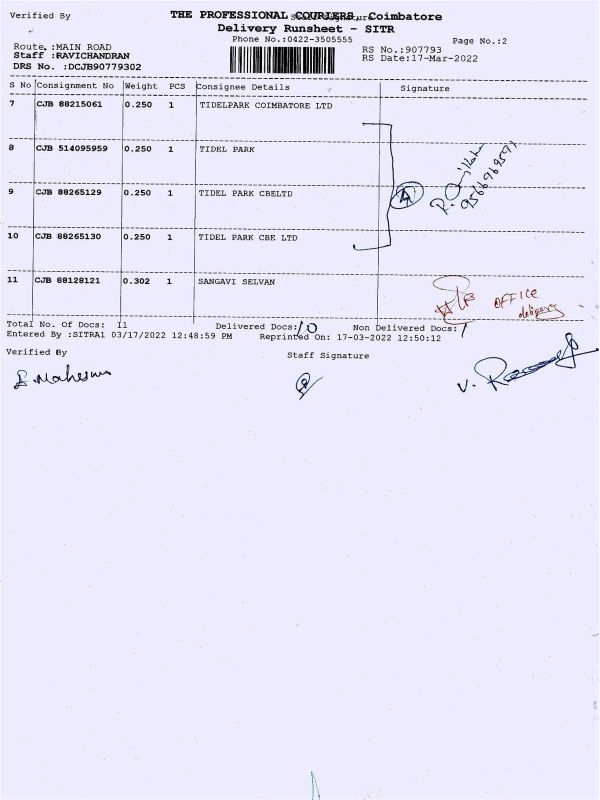 Verified By THE PROFESSIONAL COURIERS, Coimbatore
Delivery Runsheet - SITR
Phone No.:0422-3505555 Page No.:2
Route. :MAIN ROAD RS No.:907793
Staff :RAVICHANDRAN RS Date:17-Mar-2022
DRS No. :DCJB90779302
S No Consignment No Weight PCS Consignee Details Signature
7 CJB 88215061 0.250 1 TIDELPARK COIMBATORE LTD
8 CJB 514095959 0.250 1 TIDEL PARK
9 CJB 88265129 0.250 1 TIDEL PARK CBELTD
A
10 CJB 88265130 0.250 1 TIDEL PARK CBE LTD
11 CJB 88128121 0.302 1 SANGAVI SELVAN
OFFICE
delivery
Total No. Of Docs: 11 Delivered Docs: 10 Non Delivered Docs: 1
Entered By :SITRA1 03/17/2022 12:48:59 PM Reprinted On: 17-03-2022 12:50:12
Verified By Staff Signature